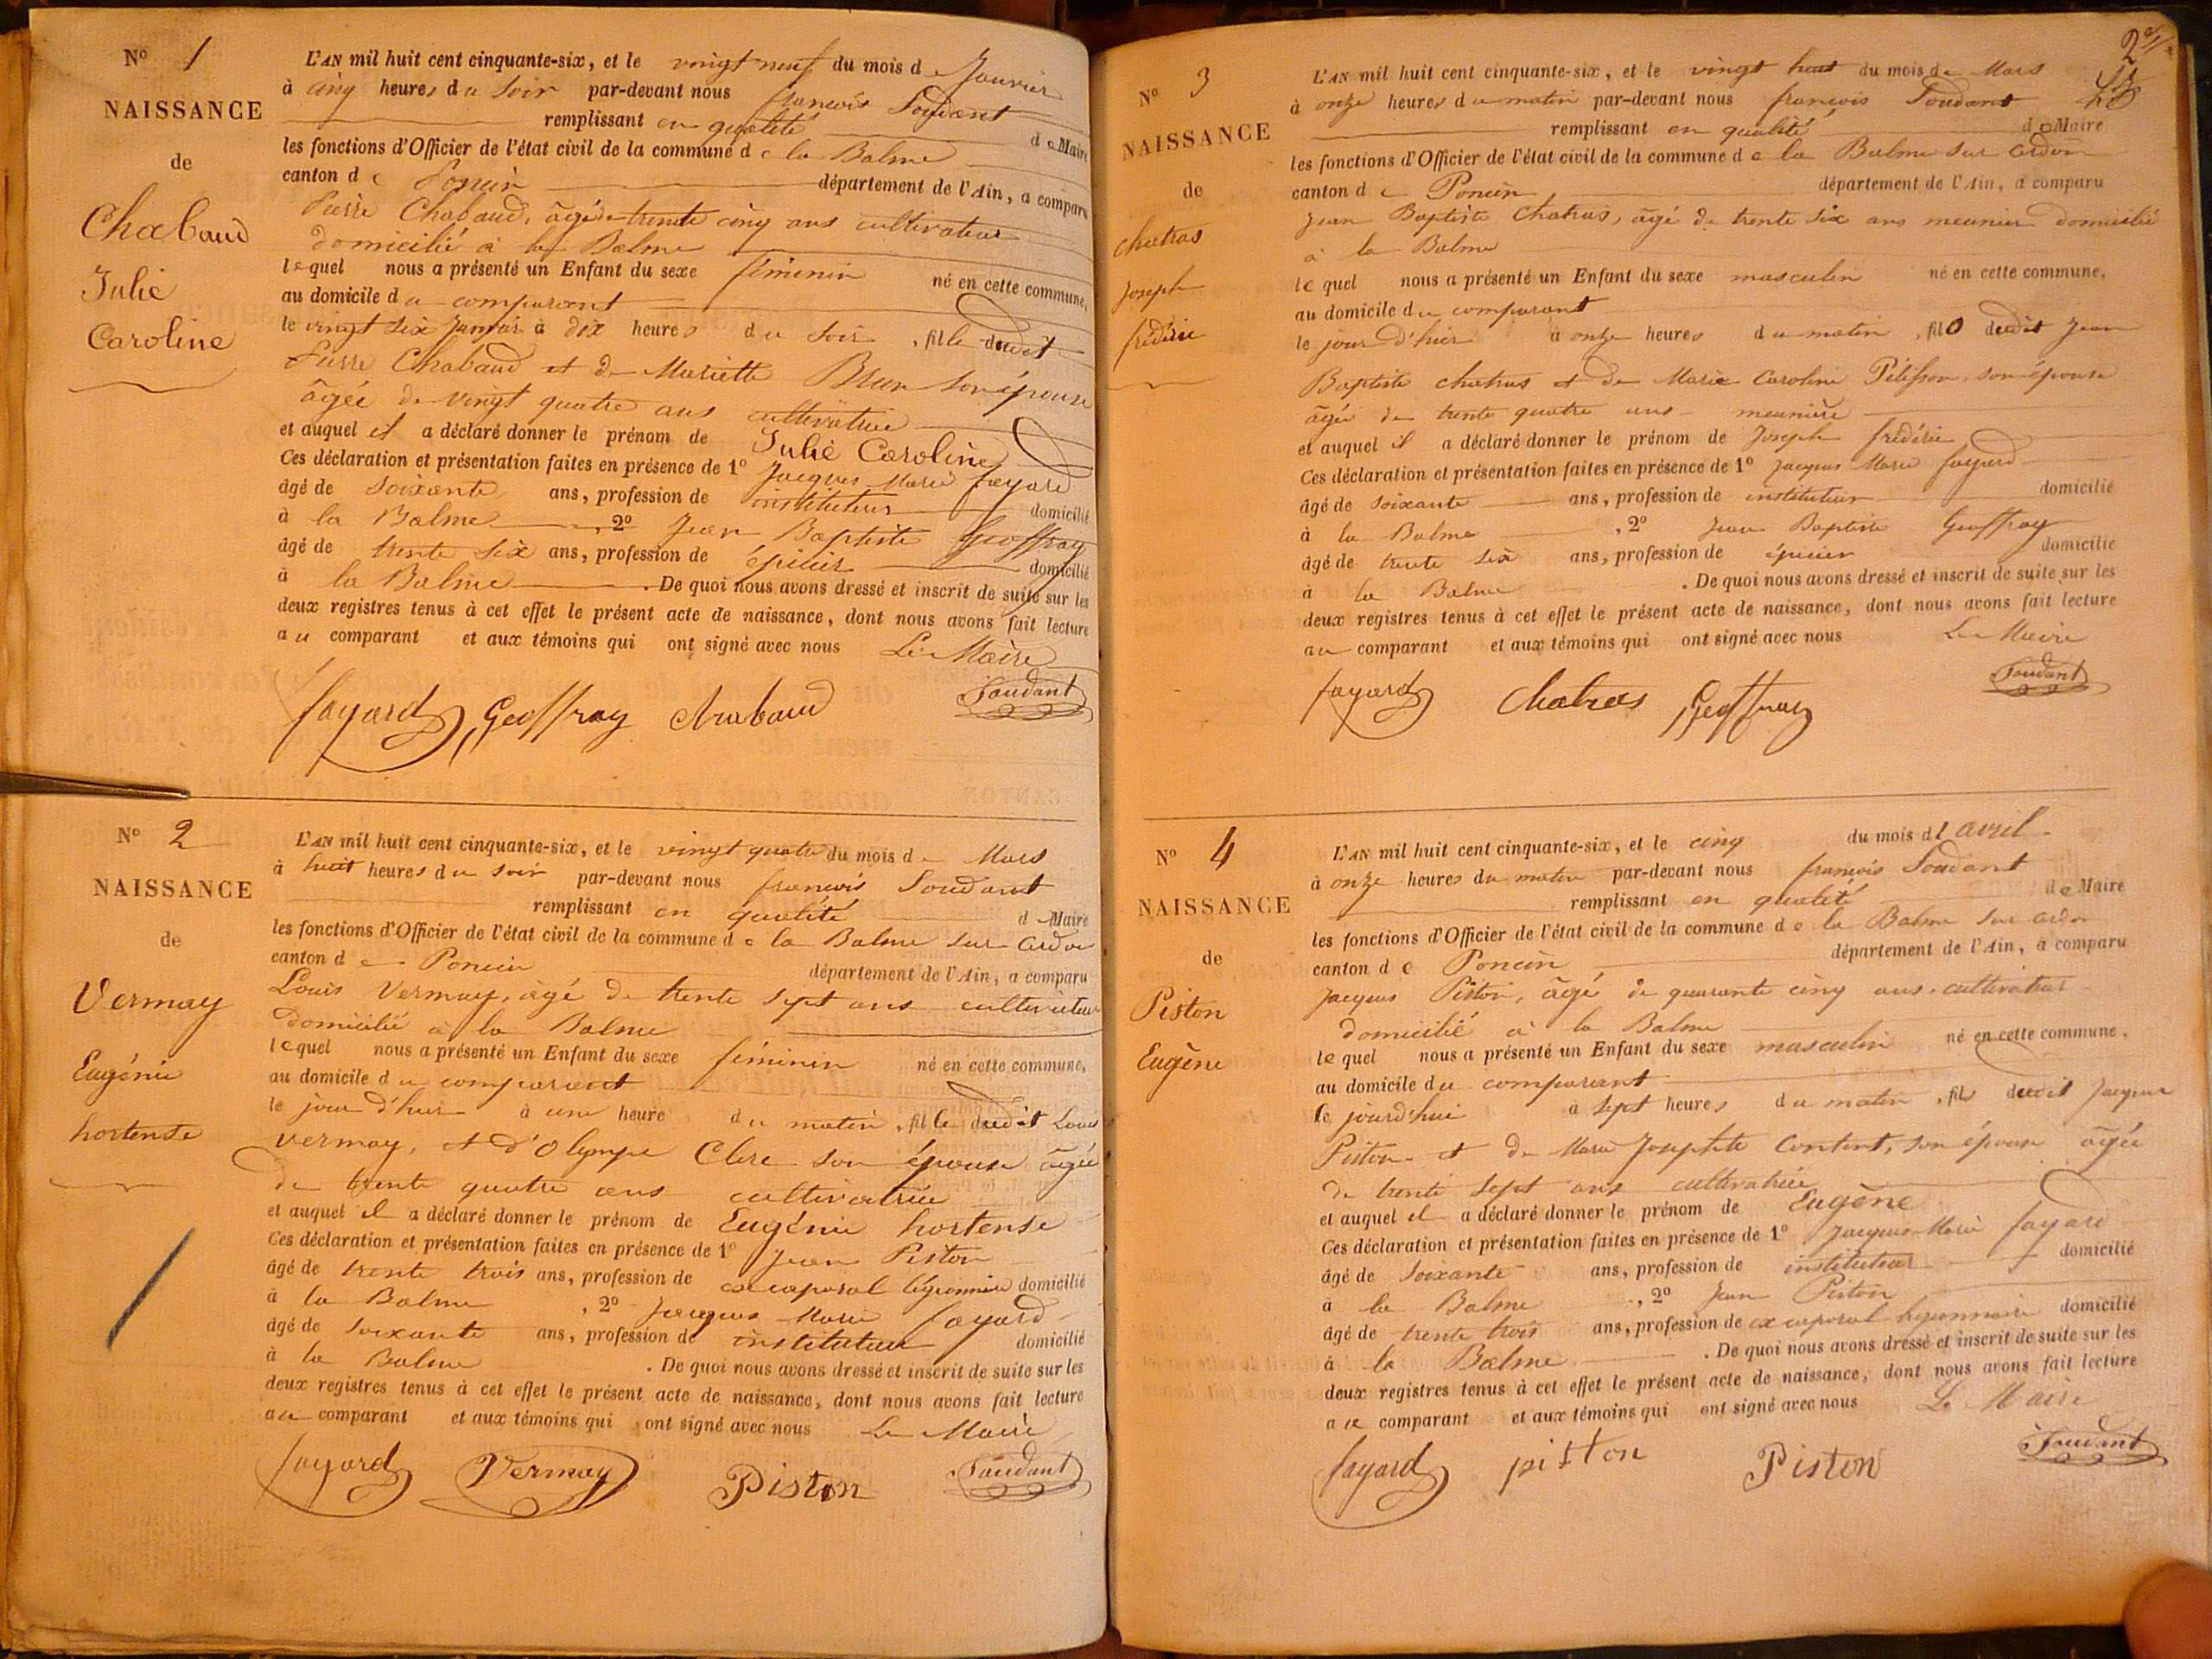 N° 1
NAISSANCE
de
Chabaud
Julie
Caroline
L'AN mil huit cent cinquante-six, et le vingt neuf du mois de Janvier
à cinq heures du soir par-devant nous françois Soudant
remplissant en qualité de Maire
les fonctions d'Officier de l'état civil de la commune de la Balme
canton de Poncin département de l'Ain, a comparu
Pierre Chabaud, âgé de trente cinq ans cultivateur
domicilié à la Balme
lequel nous a présenté un Enfant du sexe féminin né en cette commune,
au domicile du comparant
le vingt six Janvier à dix heures du soir, fille dudit
Pierre Chabaud et de Mariette Brun son épouse
âgée de vingt quatre ans cultivatrice
et auquel il a déclaré donner le prénom de Julie Caroline
Ces déclaration et présentation faites en présence de 1° Jacques Marie fayard
âgé de soixante ans, profession de instituteur domicilié
à la Balme, 2° Jean Baptiste Geoffray
âgé de trente six ans, profession de épicier domicilié
à la Balme. De quoi nous avons dressé et inscrit de suite sur les
deux registres tenus à cet effet le présent acte de naissance, dont nous avons fait lecture
au comparant et aux témoins qui ont signé avec nous Le Maire
fayard Geoffray Chabaud Soudant
N° 2
NAISSANCE
de
Vermay
Eugénie
hortense
L'AN mil huit cent cinquante-six, et le vingt quatre du mois de Mars
à huit heures du soir par-devant nous françois Soudant
remplissant en qualité de Maire
les fonctions d'Officier de l'état civil de la commune de la Balme sur Cerdon
canton de Poncin département de l'Ain, a comparu
Louis Vermay, âgé de trente sept ans cultivateur
domicilié à la Balme
lequel nous a présenté un Enfant du sexe féminin né en cette commune,
au domicile du comparant
le jour d'hier à une heure du matin, fille dudit Louis
Vermay, et d'Olympe Clerc son épouse âgée
de trente quatre ans cultivatrice
et auquel il a déclaré donner le prénom de Eugénie hortense
Ces déclaration et présentation faites en présence de 1° Jean Piston
âgé de trente trois ans, profession de ex caporal légionnaire domicilié
à la Balme, 2° Jacques Marie fayard
âgé de soixante ans, profession de instituteur domicilié
à la Balme. De quoi nous avons dressé et inscrit de suite sur les
deux registres tenus à cet effet le présent acte de naissance, dont nous avons fait lecture
au comparant et aux témoins qui ont signé avec nous Le Maire
fayard Vermay Piston Soudant
N° 3
NAISSANCE
de
chatras
Joseph
frédéric
L'AN mil huit cent cinquante-six, et le vingt huit du mois de Mars
à onze heures du matin par-devant nous françois Soudant
remplissant en qualité de Maire
les fonctions d'Officier de l'état civil de la commune de la Balme sur Cerdon
canton de Poncin département de l'Ain, a comparu
Jean Baptiste Chatras, âgé de trente six ans meunier domicilié
à la Balme
lequel nous a présenté un Enfant du sexe masculin né en cette commune,
au domicile du comparant
le jour d'hier à onze heures du matin, fils dudit Jean
Baptiste chatras et de Marie Caroline Pélisson, son épouse
âgée de trente quatre ans meunière
et auquel il a déclaré donner le prénom de Joseph frédéric
Ces déclaration et présentation faites en présence de 1° Jacques Marie fayard
âgé de soixante ans, profession de instituteur domicilié
à la Balme, 2° Jean Baptiste Geoffray
âgé de trente six ans, profession de épicier domicilié
à la Balme. De quoi nous avons dressé et inscrit de suite sur les
deux registres tenus à cet effet le présent acte de naissance, dont nous avons fait lecture
au comparant et aux témoins qui ont signé avec nous Le Maire
fayard Chatras Geoffray Soudant
N° 4
NAISSANCE
de
Piston
Eugène
L'AN mil huit cent cinquante-six, et le cinq du mois d'avril
à onze heures du matin par-devant nous françois Soudant
remplissant en qualité de Maire
les fonctions d'Officier de l'état civil de la commune de la Balme sur Cerdon
canton de Poncin département de l'Ain, a comparu
Jacques Piston, âgé de quarante cinq ans cultivateur
domicilié à la Balme
lequel nous a présenté un Enfant du sexe masculin né en cette commune,
au domicile du comparant
le jourd'hui à sept heures du matin, fils dudit Jacques
Piston et de Marie Josephte Content, son épouse âgée
de trente sept ans cultivatrice
et auquel il a déclaré donner le prénom de Eugène
Ces déclaration et présentation faites en présence de 1° Jacques Marie fayard
âgé de soixante ans, profession de instituteur domicilié
à la Balme, 2° Jean Piston
âgé de trente trois ans, profession de ex caporal légionnaire domicilié
à la Balme. De quoi nous avons dressé et inscrit de suite sur les
deux registres tenus à cet effet le présent acte de naissance, dont nous avons fait lecture
au comparant et aux témoins qui ont signé avec nous Le Maire
fayard piston Piston Soudant